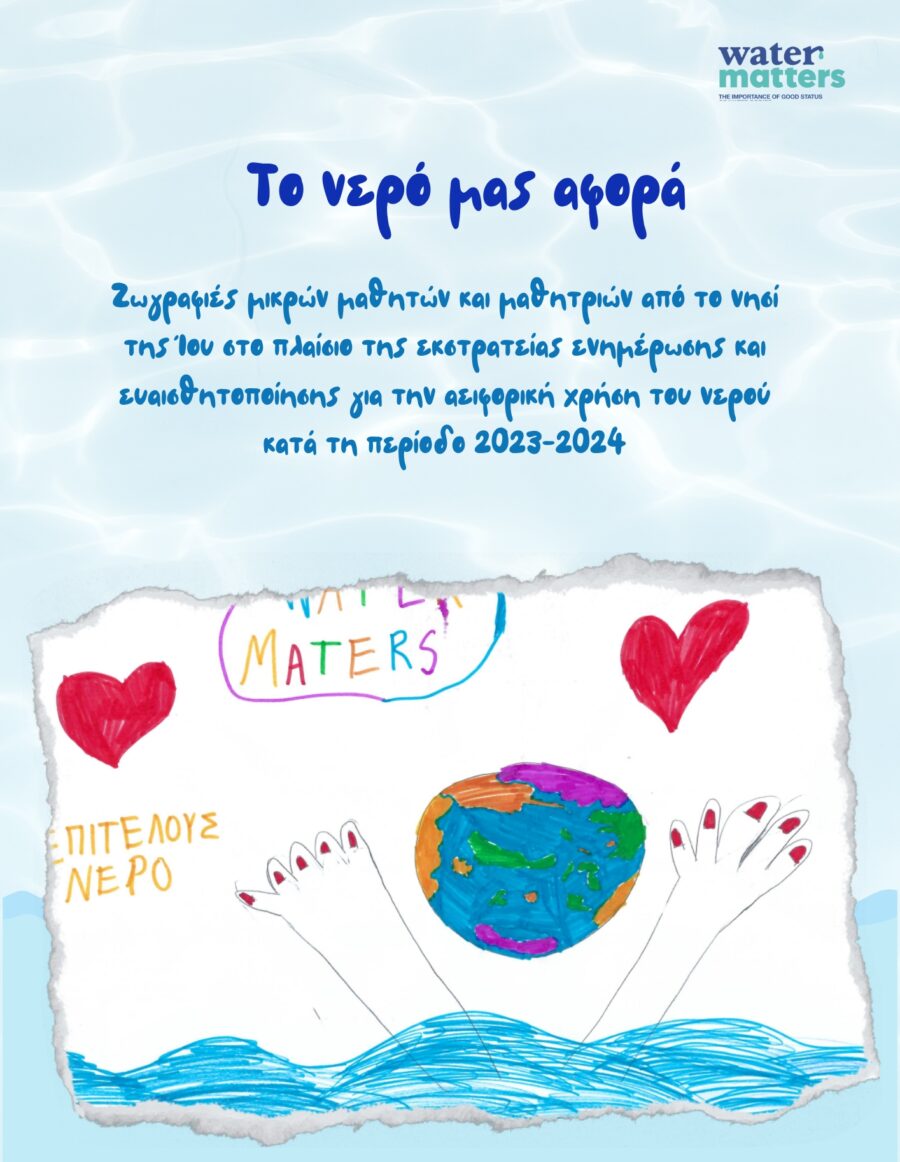 water
matters
THE IMPORTANCE OF GOOD STATUS
Το νερό μας αφορά
Ζωγραφιές μικρών μαθητών και μαθητριών από το νησί
της Ίου στο πλαίσιο της εκστρατείας ενημέρωσης και
ευαισθητοποίησης για την αειφορική χρήση του νερού
κατά τη περίοδο 2023-2024
WATER
MATERS
ΕΠΙΤΕΛΟΥΣ
ΝΕΡΟ